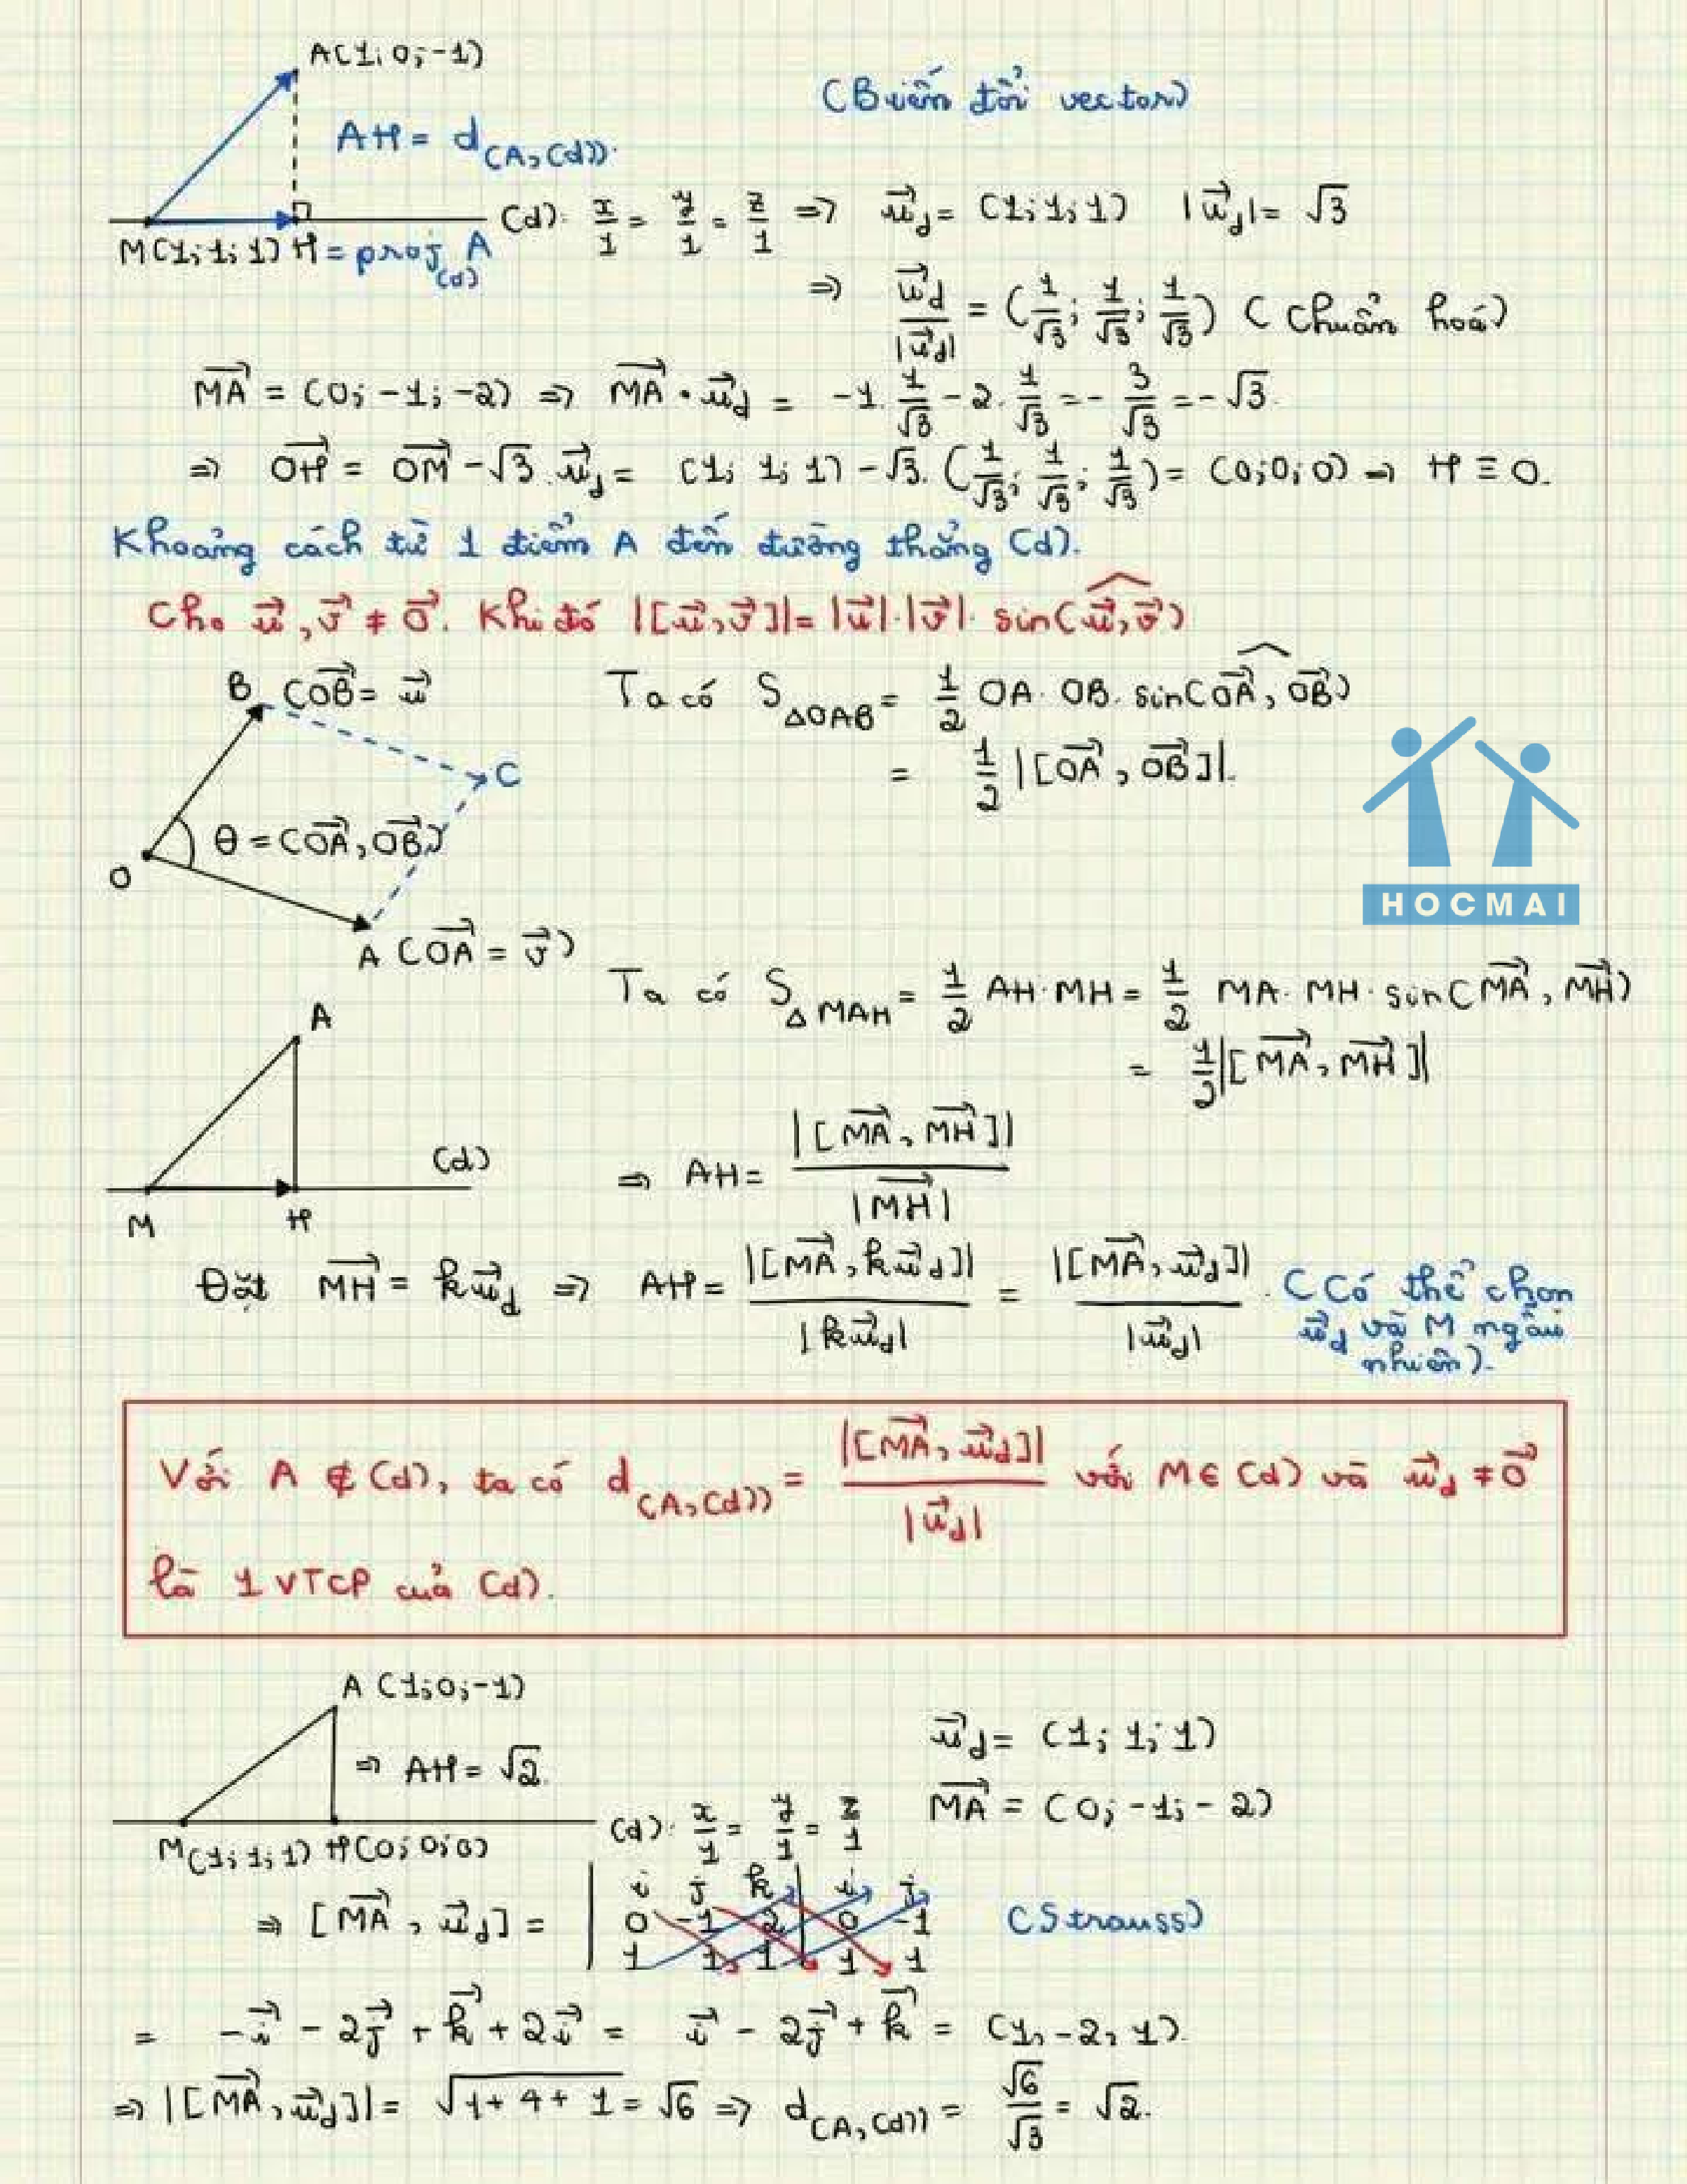 A(1; 0; -1)
(Biến đổi vector)
AH = d(A, (d)).
(d): x/1 = y/1 = z/1 ⇒ u⃗_d = (1; 1; 1) |u⃗_d| = √3
M(1; 1; 1) H = proj_(d) A
⇒ u⃗_d/|u⃗_d| = (1/√3; 1/√3; 1/√3) (Chuẩn hoá)
MA⃗ = (0; -1; -2) ⇒ MA⃗ · u⃗_d = -1. 1/√3 - 2. 1/√3 = - 3/√3 = -√3.
⇒ OH⃗ = OM⃗ - √3. u⃗_d = (1; 1; 1) - √3. (1/√3; 1/√3; 1/√3) = (0; 0; 0) ⇒ H ≡ O.
Khoảng cách từ 1 điểm A đến đường thẳng (d).
Cho u⃗, v⃗ ≠ 0⃗. Khi đó |[u⃗, v⃗]| = |u⃗|.|v⃗|. sin(u⃗, v⃗)
B (OB⃗ = u⃗
Ta có S_ΔOAB = 1/2 OA. OB. sin(OA⃗, OB⃗)
= 1/2 |[OA⃗, OB⃗]|.
C
θ = (OA⃗, OB⃗)
O
HOCMAI
A (OA⃗ = v⃗)
Ta có S_ΔMAH = 1/2 AH. MH = 1/2 MA. MH. sin(MA⃗, MH⃗)
= 1/2 |[MA⃗, MH⃗]|
A
(d)
M H
⇒ AH = |[MA⃗, MH⃗]| / |MH⃗|
Đặt MH⃗ = k u⃗_d ⇒ AH = |[MA⃗, k u⃗_d]| / |k u⃗_d| = |[MA⃗, u⃗_d]| / |u⃗_d| . (Có thể chọn
u⃗_d và M ngẫu
nhiên).
Với A ∉ (d), ta có d(A, (d)) = |[MA⃗, u⃗_d]| / |u⃗_d| với M ∈ (d) và u⃗_d ≠ 0⃗
là 1 VTCP của (d).
A (1; 0; -1)
u⃗_d = (1; 1; 1)
⇒ AH = √2.
MA⃗ = (0; -1; -2)
(d): x/1 = y/1 = z/1
M(1; 1; 1) H(0; 0; 0)
⇒ [MA⃗, u⃗_d] = | i j k | i j
0 -1 -2 | 0 -1
1 1 1 | 1 1
(Strauss)
= -i⃗ - 2j⃗ + k⃗ + 2i⃗ = i⃗ - 2j⃗ + k⃗ = (1, -2, 1).
⇒ |[MA⃗, u⃗_d]| = √(1 + 4 + 1) = √6 ⇒ d(A, (d)) = √6/√3 = √2.